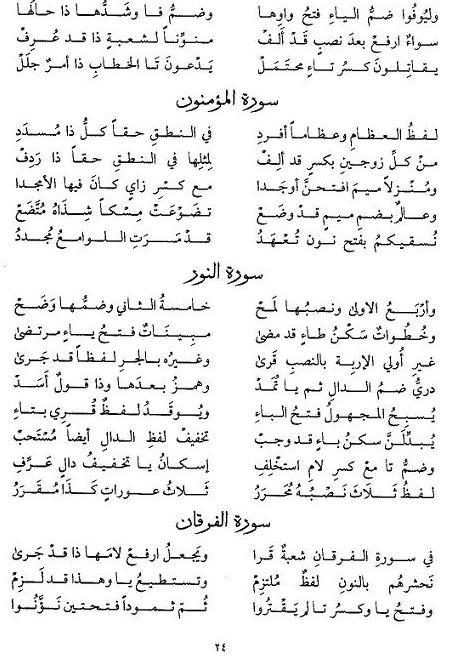 وليُوفُوا ضمُّ الياءِ فتحُ واوِها وضمُّ فا وشدُّها ذا حالُها
سواءٌ ارفعْ بعدَ نصبٍ قدْ أُلفْ منوَّناً لشعبةٍ ذا قد عُرِفْ
يقاتِلونَ كسرُ تاءٍ محتملْ يدْعونَ تَا الخطابِ ذا أمرٌ جلَلْ
سورة المؤمنون
لفظُ العظامِ وعظاماً أفردِ في النطقِ حقاً كلُّ ذا مُسدَدِ
منْ كلِّ زوجينِ بكسرٍ قد ألِفْ لِمثلِها في النطقِ حقاً ذا رَدِفْ
ومُنْزلاً ميمَ افتحنَّ أوجَدا مع كسْرِ زايٍ كانَ فيها الأمجدا
وعالمُ بضمِ ميمٍ قد وضَعْ تضوَّعتْ مِسْكاً شِذَاهُ مُتَّضَعْ
نُسقيكمُ بفتحِ نونٍ تُعْهَدُ قدْ مرَّتِ اللوامعُ مُجددُ
سورة النور
وأرْبَعُ الاولىٰ ونصبُها لَمَحْ خامسةُ الثاني وضمُّها وَضَحْ
وخُطُواتُ سكْنُ طاءٍ قد مضىٰ مبيَّناتٌ فتحُ ياءٍ مرتضىٰ
غيرِ أُولي الإربةِ بالنصبِ قَرىٰ وغيرُه بالجرِ لفظاً قد جَرىٰ
دريُّ ضمُ الدالِ ثم يا تُمَدْ وهمزُ بعدَها وذا قولٌ أسَدْ
يُسبحُ المجهولُ فتحُ الباءِ ويُوقَدُ لفظٌ قُرِي بتاءِ
يبدِّلَنَّ سكنُ باءٍ قد وجبْ تخفيفُ لفظِ الدالِ أيضاً مُسْتَحبْ
وضمُّ تا معْ كسرِ لامِ استُخلِفِ إسكانُ يا تخفيفُ دالٍ عَرِّفِ
لفظُ ثَلاثَ نَصْبُهُ مُحَرَّرُ ثلاثُ عوراتٍ كَذَا مُقَرَّرُ
سورة الفرقان
في سورةِ الفرقانِ شعبةٌ قَرا ويجعلُ ارفعْ لامَها ذا قد جَرىٰ
نَحشرُهم بالنونِ لفظٌ مُلتزِمْ وتستطيعُ يا وهذا قد لَزِمْ
وفتحُ يا وكسرُ تا لم يَقْتُروا ثُمّ ثموداً فتحتينِ نوَّنُوا
٢٤